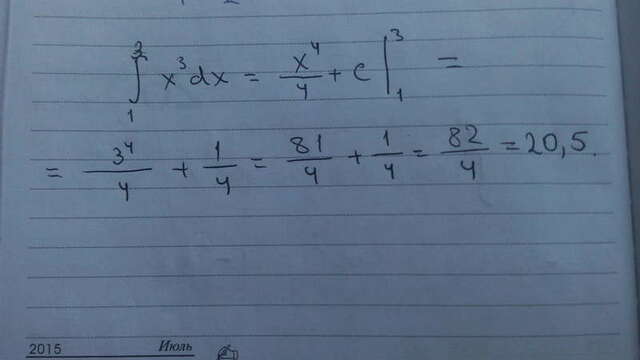 ∫₁³ x³ dx = x⁴/4 + c |₁³ =
= 3⁴/4 + 1/4 = 81/4 + 1/4 = 82/4 = 20,5.
2015 Июль